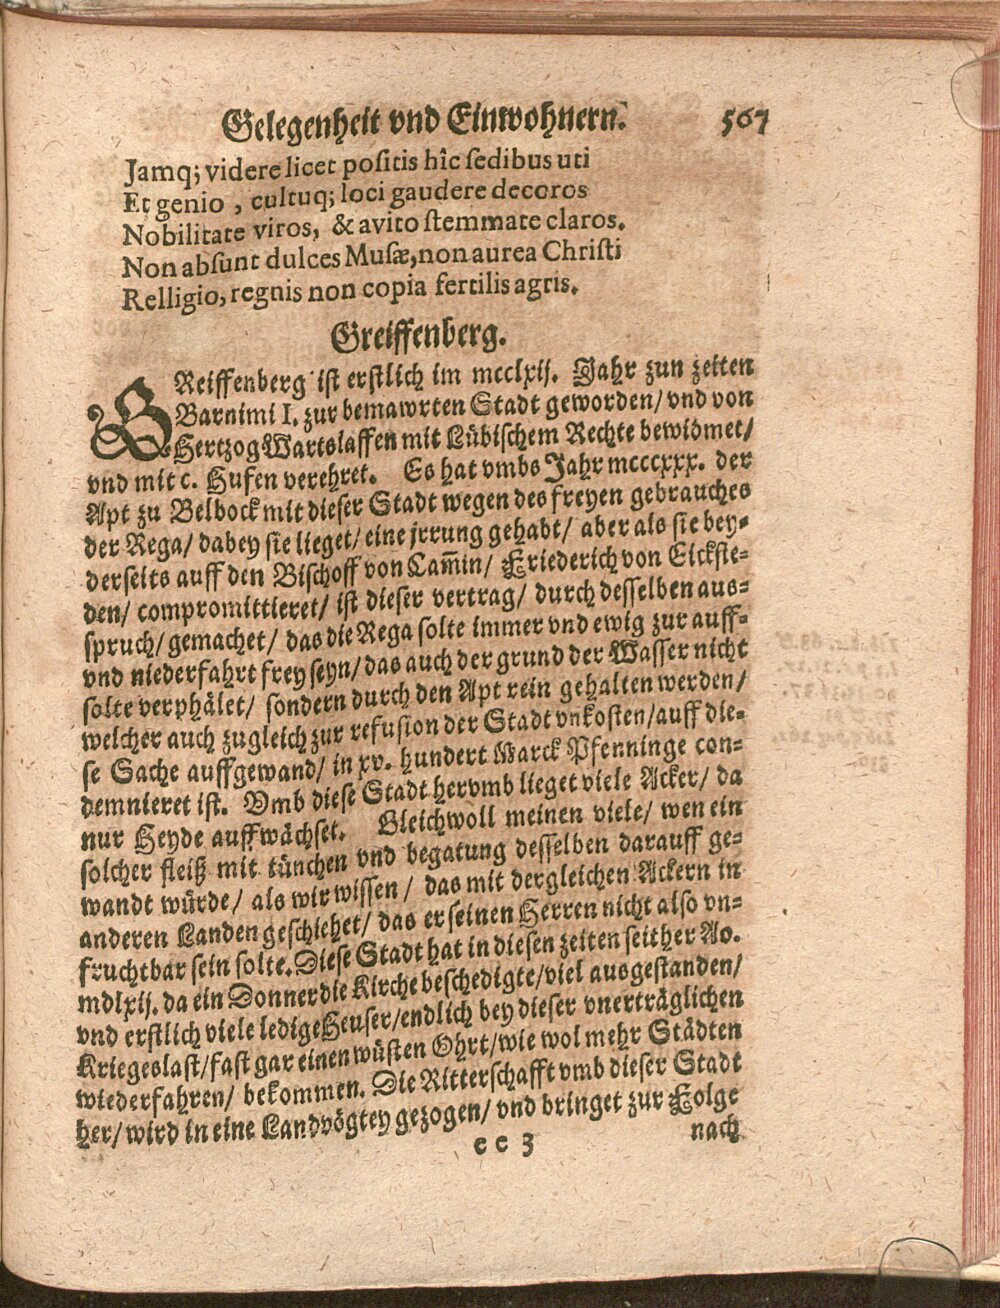 Gelegenheit vnd Einwohnern. 567
Jamq; videre licet positis hîc sedibus uti
Et genio, cultuq; loci gaudere decoros
Nobilitate viros, & avito stemmate claros.
Non absunt dulces Musæ, non aurea Christi
Relligio, regnis non copia fertilis agris.
Greiffenberg.
GReiffenberg ist erstlich im mcclxij. Jahr zun zeiten
Barnimi I. zur bemawrten Stadt geworden/ vnd von
Hertzog Wartslaffen mit Lübischem Rechte bewidmet/
vnd mit c. Hufen verehret. Es hat vmbs Jahr mcccxxx. der
Apt zu Belbock mit dieser Stadt wegen des freyen gebrauches
der Rega/ dabey sie lieget/ eine jrrung gehabt/ aber als sie bey-
derseits auff den Bischoff von Cam̃in/ Friederich von Eickste-
den/ compromittieret/ ist dieser vertrag/ durch desselben aus-
spruch/ gemachet/ das die Rega solte immer vnd ewig zur auff-
vnd niederfahrt frey seyn/ das auch der grund der Wasser nicht
solte verphälet/ sondern durch den Apt rein gehalten werden/
welcher auch zugleich zur refusion der Stadt vnkosten/ auff die-
se Sache auffgewand/ in xv. hundert Marck Pfenninge con-
demnieret ist. Vmb diese Stadt hervmb lieget viele Acker/ da
nur Heyde auffwächset. Gleichwoll meinen viele/ wen ein
solcher fleiß mit tünchen vnd begatung desselben darauff ge-
wandt würde/ als wir wissen/ das mit dergleichen Ackern in
anderen Landen geschiehet/ das er seinen Herren nicht also vn-
fruchtbar sein solte. Diese Stadt hat in diesen zeiten seither Ao.
mdlxij. da ein Donner die Kirche beschedigte/ viel ausgestanden/
vnd erstlich viele ledige Heuser/ endlich bey dieser vnerträglichen
Kriegeslast/ fast gar einen wüsten Ohrt/ wie wol mehr Städten
wiederfahren/ bekommen. Die Ritterschafft vmb dieser Stadt
her/ wird in eine Landvögtey gezogen/ vnd bringet zur Folge
c c 3 nach